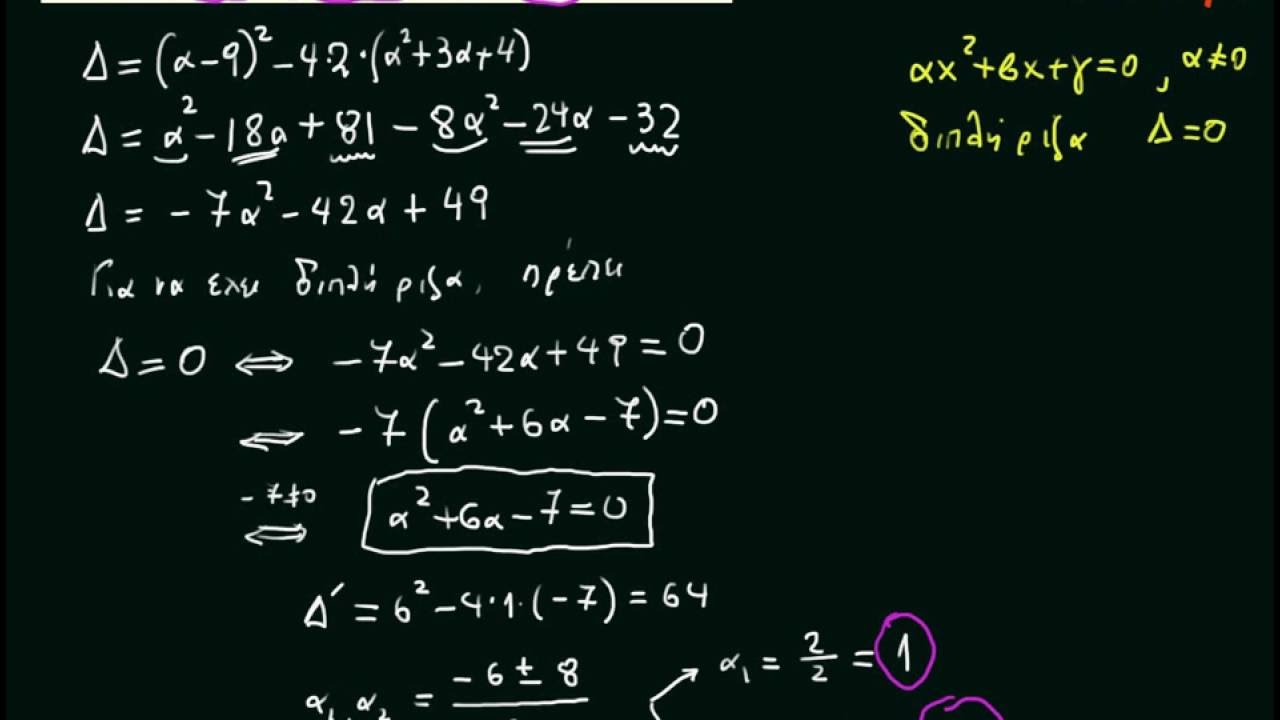 Δ = (α-9)² - 4·2·(α²+3α+4)
Δ = α² - 18α + 81 - 8α² - 24α - 32
Δ = - 7α² - 42α + 49
Για να έχει διπλή ρίζα, πρέπει
Δ = 0 ⇔ - 7α² - 42α + 49 = 0
⇔ - 7 (α² + 6α - 7) = 0
- 7 ≠ 0
⇔ α² + 6α - 7 = 0
Δ´ = 6² - 4·1·(-7) = 64
α₁, α₂ = -6 ± 8
α₁ = 2/2 = 1
αx² + βx + γ = 0, α ≠ 0
διπλή ρίζα Δ = 0